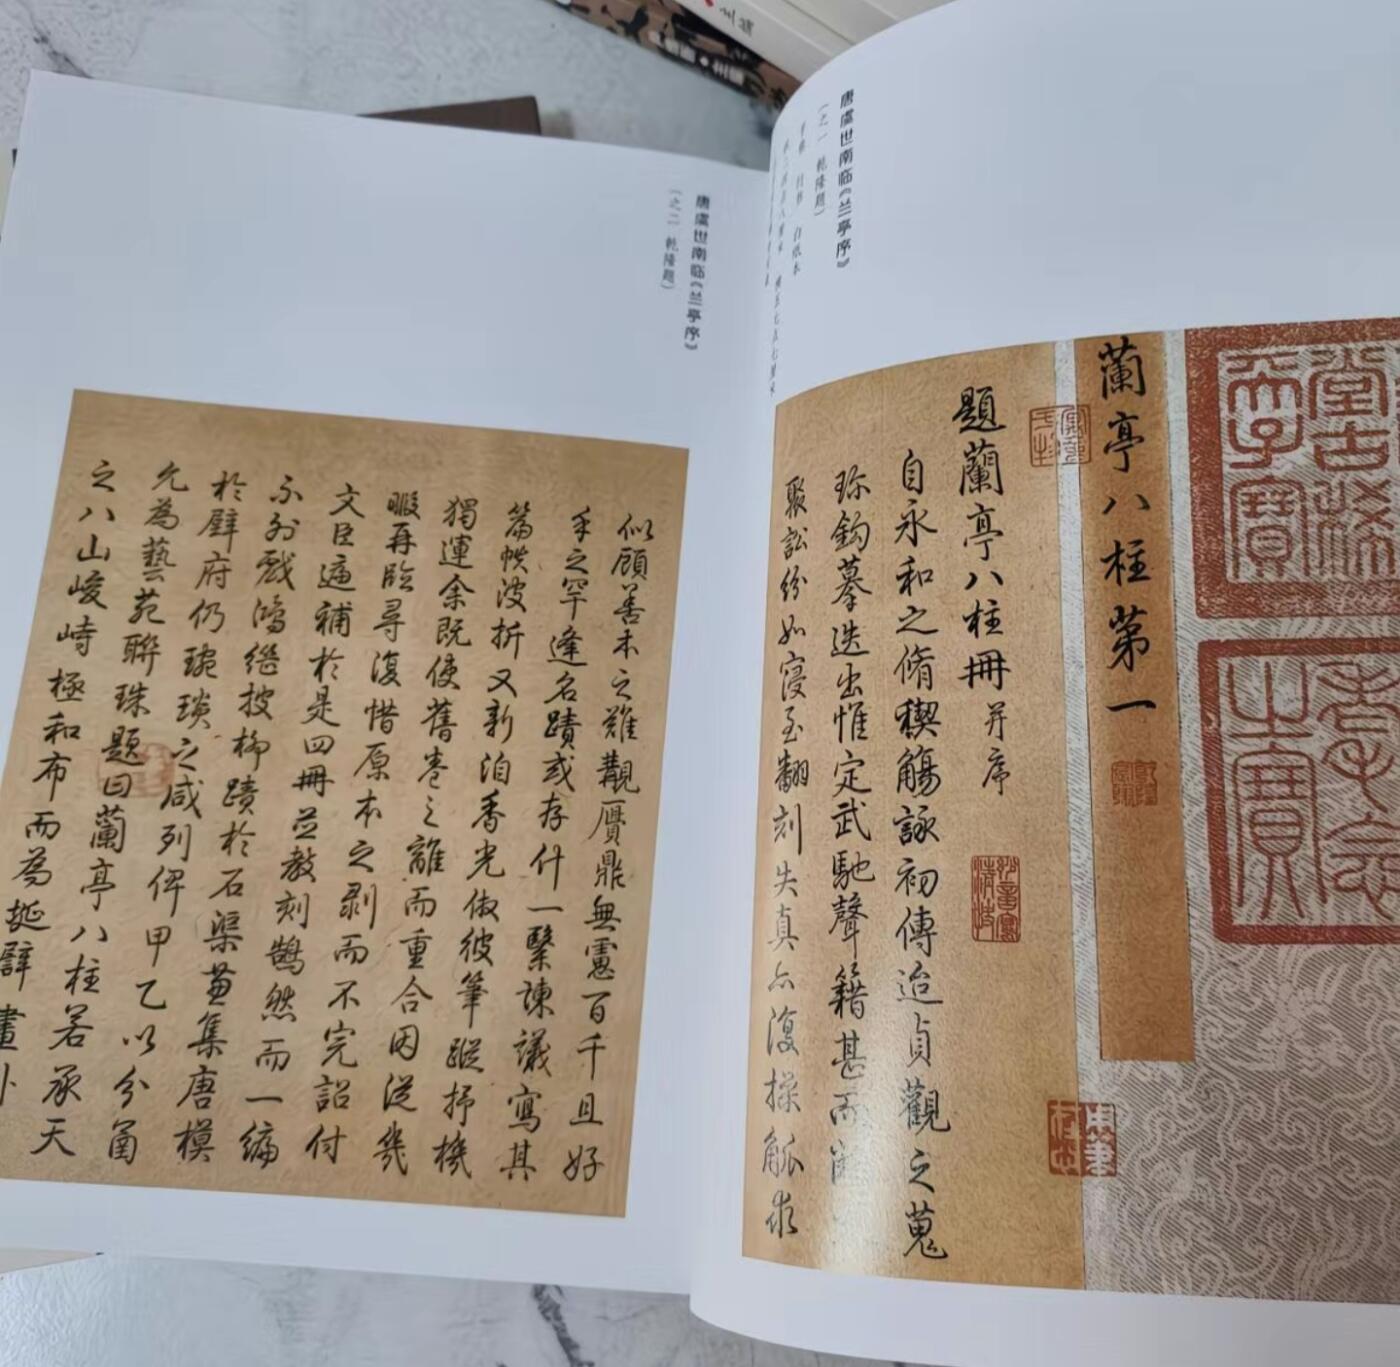 唐虞世南临《兰亭序》
（之一 乾隆题）
行书 白纸本
蘭亭八柱第一
題蘭亭八柱冊并序
自永和之脩禊觴詠初傳迨貞觀之蒐
珎鉤摹迭出惟定武馳聲籍甚而
聚訟紛如寖至翻刻失真亦復操觚
唐虞世南临《兰亭序》
（之二 乾隆题）
似顧善本之難覯贋鼎無慮百千且好
手之罕逢名蹟或存什一繄諫議寫其
篇帙波折又新洎香光倣彼筆蹤抒機
獨運余既使舊卷之離而重合因從幾
暇再臨尋復惜原本之剥而不完詔付
文臣遍補於是四冊並教刻鵠然而一編
不列戲鴻繼披柳蹟於石渠兼集唐模
於壁府仍琬琰之咸列俾甲乙以分函
允為藝苑聯珠題曰蘭亭八柱若承天
之八山峻峙極和布而為